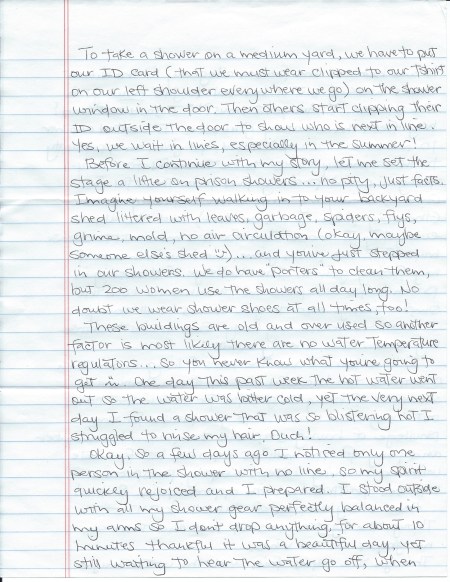 To take a shower on a medium yard, we have to put
our ID card (that we must wear clipped to our Tshirt
on our left shoulder everywhere we go) on the shower
window in the door. Then others start clipping their
ID outside the door to show who is next in line.
Yes, we wait in lines, especially in the summer!
Before I continue with my story, let me set the
stage a little on prison showers... no pity, just facts.
Imagine yourself walking in to your backyard
shed littered with leaves, garbage, spiders, flys,
grime, mold, no air circulation (okay, maybe
someone else's shed ü)... and you've just stepped
in our showers. We do have "porters" to clean them,
but 200 women use the showers all day long. No
doubt we wear shower shoes at all times, too!
These buildings are old and over used so another
factor is most likely there are no water temperature
regulators... So you never know what you're going to
get ü. One day this past week the hot water went
out so the water was bitter cold, yet the very next
day I found a shower that was so blistering hot I
struggled to rinse my hair. Ouch!
Okay. So a few days ago I noticed only one
person in the shower with no line, so my spirit
quickly rejoiced and I prepared. I stood outside
with all my shower gear perfectly balanced in
my arms so I don't drop anything, for about 10
minutes thankful it was a beautiful day, yet
still waiting to hear the water go off, when